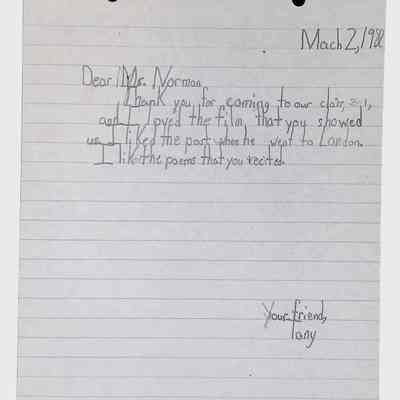 Mach 2, 198
Dear Mr. Norman,
Thank you for coming to our class, 3-1,
and I loved the film, that you showed
us. I liked the part when he went to London.
I like the poems that you recited.
Your friend,
Tany